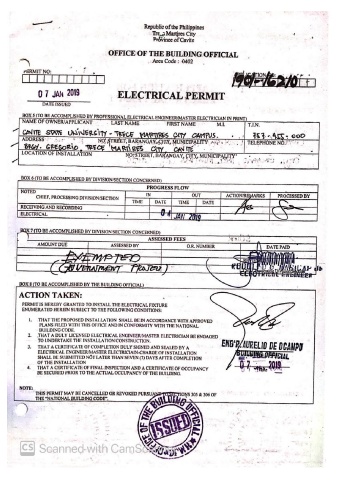 Republic of the Philippines
Trece Martires City
Province of Cavite
OFFICE OF THE BUILDING OFFICIAL
Area Code : 0402
PERMIT NO:
07 JAN 2019
DATE ISSUED
ELECTRICAL PERMIT
BOX 5 (TO BE ACCOMPLISHED BY PROFESSIONAL ELECTRICAL ENGINEER/MASTER ELECTRICIAN IN PRINT)
NAME OF OWNER/APPLICANT LAST NAME FIRST NAME M.I. T.I.N.
CAVITE STATE UNIVERSITY - TRECE MARTIRES CITY CAMPUS.
ADDRESS NO. STREET, BARANGAY, CITY, MUNICIPALITY TELEPHONE NO.
BRGY. GREGORIO TRECE MARTIRES CITY CAVITE
LOCATION OF INSTALLATION NO. STREET, BARANGAY, CITY, MUNICIPALITY
BOX 6 (TO BE ACCOMPLISHED BY DIVISION/SECTION CONCERNED)
PROGRESS FLOW
NOTED IN OUT ACTION/REMARKS PROCESSED BY
CHIEF, PROCESSING DIVISION/SECTION TIME DATE TIME DATE
RECEIVING AND RECORDING
ELECTRICAL 04 JAN 2019
BOX 7 (TO BE ACCOMPLISHED BY DIVISION CONCERNED)
ASSESSED FEES
AMOUNT DUE ASSESSED BY O.R. NUMBER DATE PAID
EXEMPTED
(GOVERNMENT PROJECT)
ELECTRICAL ENGINEER
BOX 8 (TO BE ACCOMPLISHED BY THE BUILDING OFFICIAL)
ACTION TAKEN:
PERMIT IS HEREBY GRANTED TO INSTALL THE ELECTRICAL FIXTURE
ENUMERATED HEREIN SUBJECT TO THE FOLLOWING CONDITIONS:
1. THAT THE PROPOSED INSTALLATION SHALL BE IN ACCORDANCE WITH APPROVED
PLANS FILED WITH THIS OFFICE AND IN CONFORMITY WITH THE NATIONAL
BUILDING CODE.
2. THAT A DULY LICENSED ELECTRICAL ENGINEER/MASTER ELECTRICIAN BE ENGAGED
TO UNDERTAKE THE INSTALLATION/CONSTRUCTION.
3. THAT A CERTIFICATE OF COMPLETION DULY SIGNED AND SEALED BY A
ELECTRICAL ENGINEER/MASTER ELECTRICIAN-CHARGE OF INSTALLATION
SHALL BE SUBMITTED NOT LATER THAN SEVEN (7) DAYS AFTER COMPLETION
OF THE INSTALLATION
4. THAT A CERTIFICATE OF FINAL INSPECTION AND A CERTIFICATE OF OCCUPANCY
BE SECURED PRIOR TO THE ACTUAL OCCUPANCY OF THE BUILDING.
ENGR. AURELIO DE OCAMPO
BUILDING OFFICIAL
07 JAN 2019
NOTE:
THIS PERMIT MAY BE CANCELLED OR REVOKED PURSUANT SECTIONS 305 & 306 OF
THE "NATIONAL BUILDING CODE".
ISSUED
CS Scanned with CamS